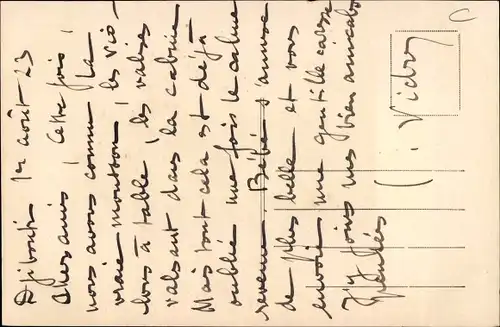 Djibouti 1er août 23
Chers amis, Cette fois,
nous avons connu la
vraie mousson, les vio-
lons à table, les valises
valsant dans la cabine
Mais tout cela est déjà
oublié une fois le calme
revenu. Bébé s'amuse
de plus belle et vous
envoie une gentille caresse
J'y joins mes bien amicales
pensées